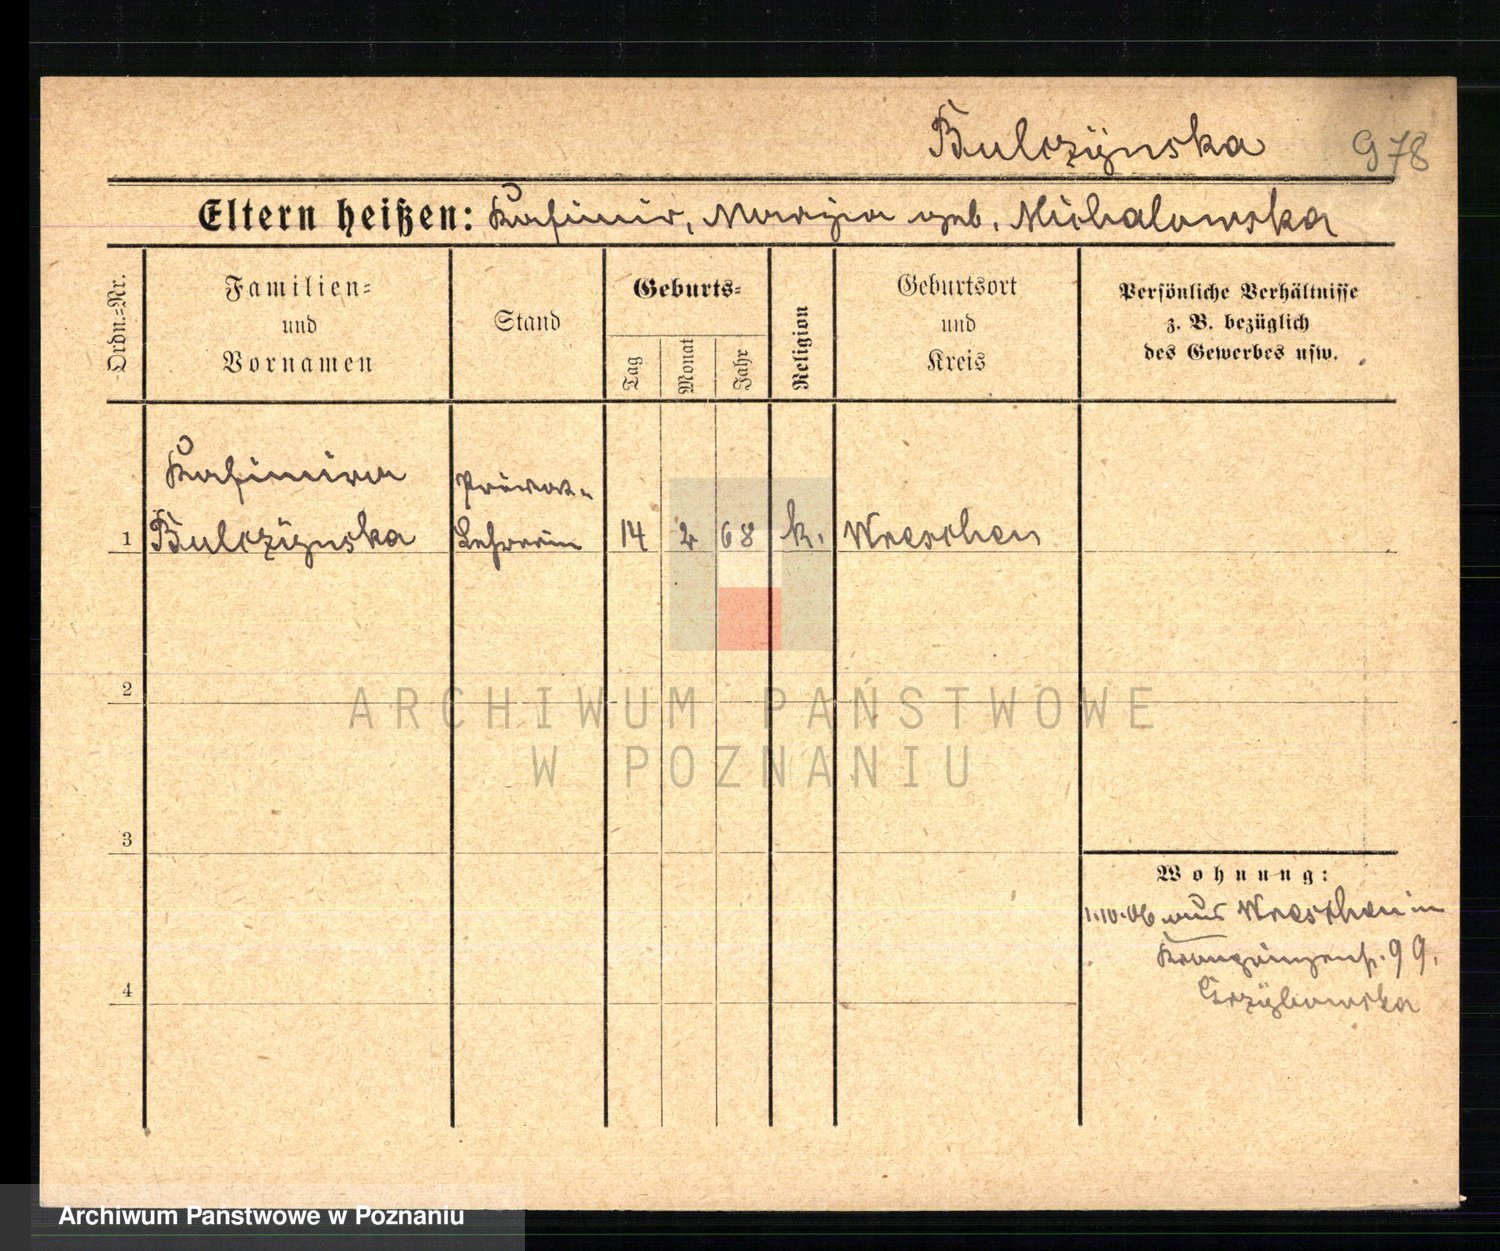 Bulczÿnska 978
Eltern heißen: Kasimir, Marÿia geb. Michalowska
Ordn.-Nr.
Familien-
und
Vornamen
Stand
Geburts-
Tag
Monat
Jahr
Religion
Geburtsort
und
Kreis
Persönliche Verhältnisse
z. B. bezüglich
des Gewerbes usw.
Kasimira
Privat-
1 Bulczÿnska Lehrerin 14 2 68 k. Wreschen
2
ARCHIWUM PAŃSTWOWE
W POZNANIU
3
Wohnung:
1.10.06 aus Wreschen in
Kronprinzenst. 99.
4
Grzÿbowska
Archiwum Państwowe w Poznaniu